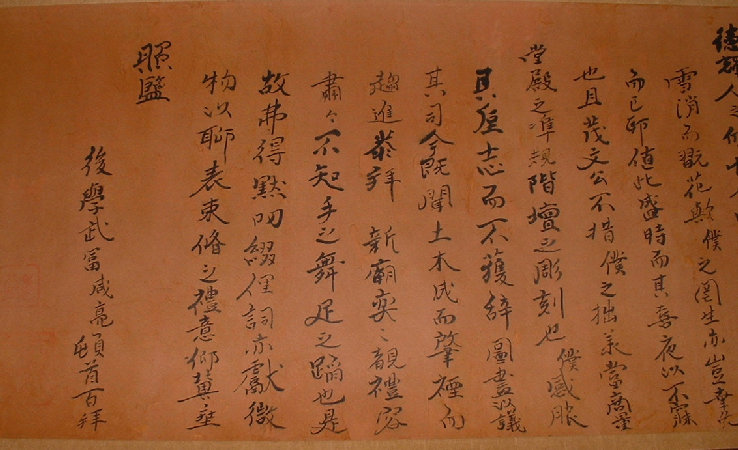 人之
雪消而翫花歟僕之生亦豈幸
而已耶值此盛時而其喜夜以不寐
也且茂文公不揩僕之拙義嘗商量
堂殿之準規階壇之彫刻也僕感服
其厚志而不獲辞圖畫以議
其司今既聞土木成而肇禋而
趨進恭拜新廟奕〻覩禮容
肅〻不知手之舞足之蹈也是
故弗得黙叨綴俚詞亦獻微
物以聊表束脩之禮意仰冀垂
照鑒
後學武富咸亮頓首百拜